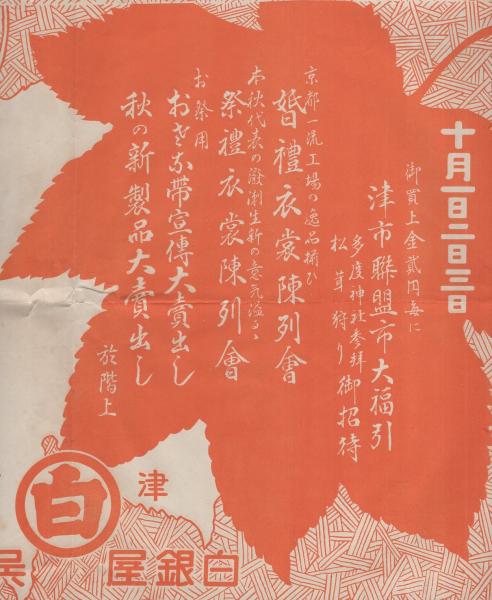 十月一日二日三日
御買上金貳円毎に
津市聯盟市大福引
多度神社参拜
松茸狩り御招待
京都一流工場の逸品揃ひ
婚禮衣裳陳列會
本秋代表の溌溂生新の意気溢るゝ
祭禮衣裳陳列會
お祭用
おそな帯宣傳大賣出し
秋の新製品大賣出し
於階上
津
白
白銀屋呉